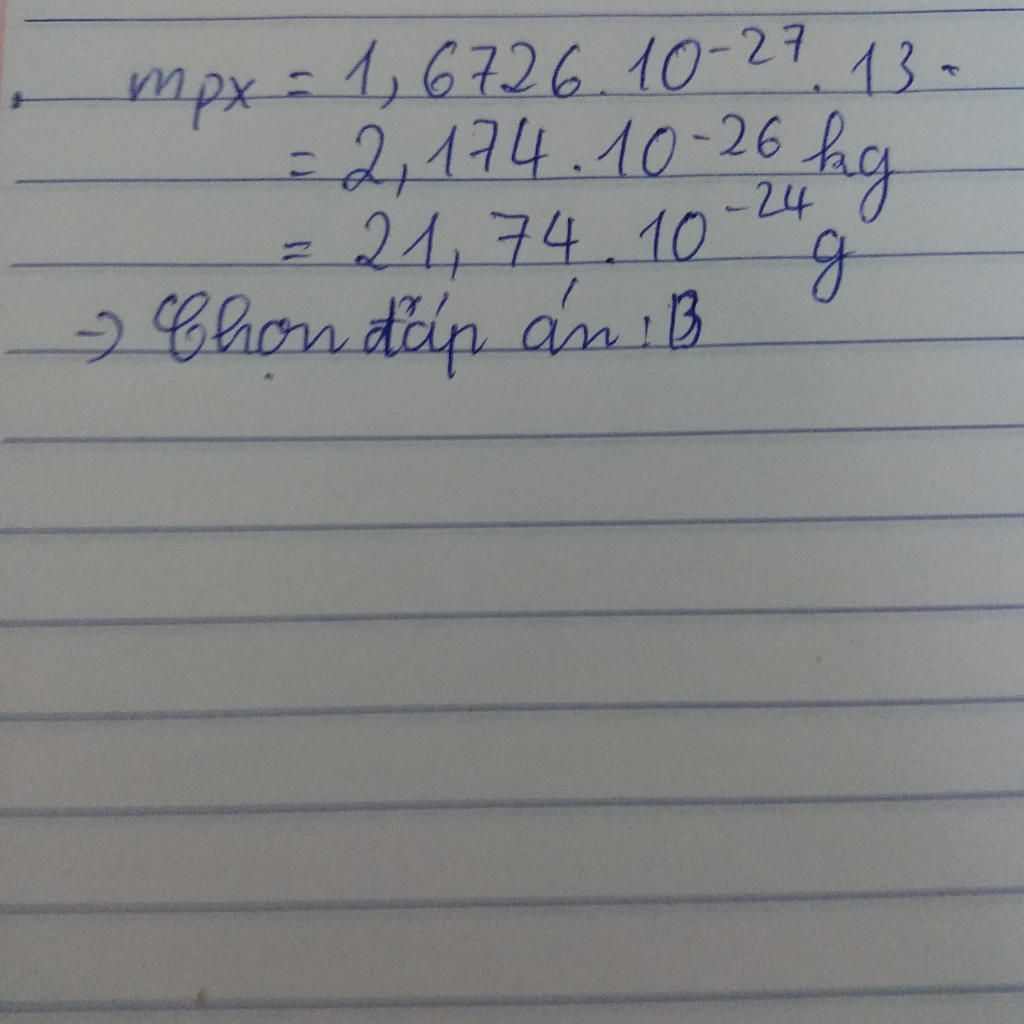 mpx = 1,6726.10-27.13.
= 2,174.10-26 kg
= 21,74.10-24 g
→ Chọn đáp án: B